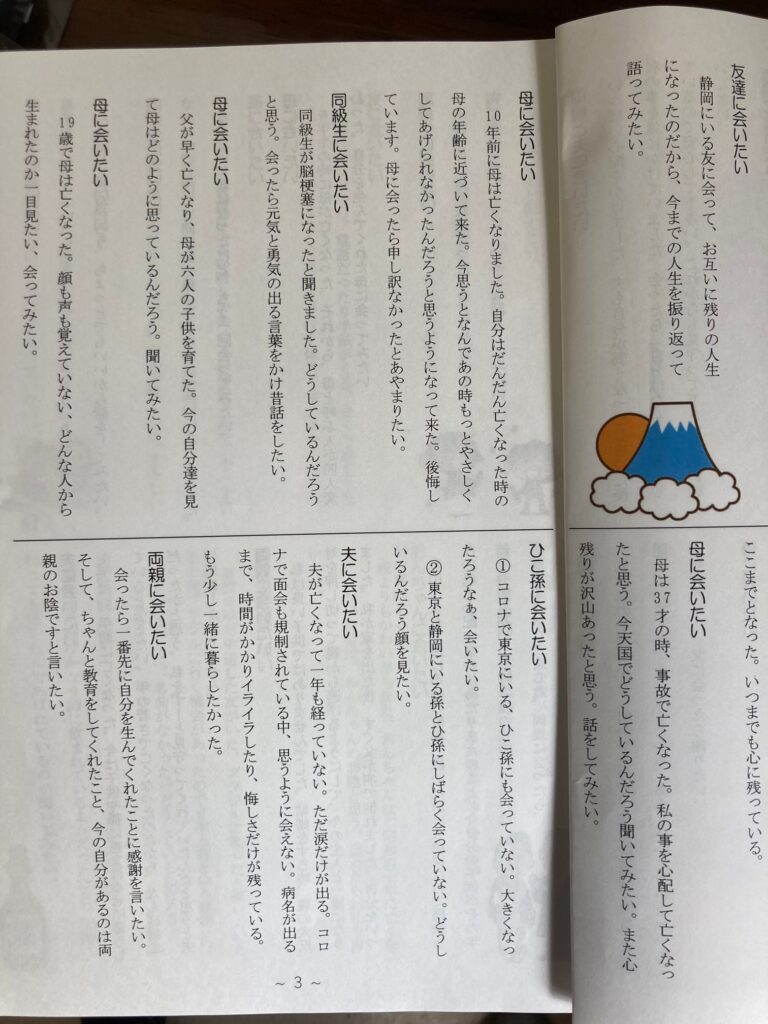 友達に会いたい
静岡にいる友に会って、お互いに残りの人生
になったのだから、今までの人生を振り返って
語ってみたい。
ここまでとなった。いつまでも心に残っている。
母に会いたい
母は37才の時、事故で亡くなった。私の事を心配して亡くなっ
たと思う。今天国でどうしているんだろう聞いてみたい。また心
残りが沢山あったと思う。話をしてみたい。
母に会いたい
10年前に母は亡くなりました。自分はだんだん亡くなった時の
母の年齢に近づいて来た。今思うとなんであの時もっとやさしく
してあげられなかったんだろうと思うようになって来た。後悔し
ています。母に会ったら申し訳なかったとあやまりたい。
同級生に会いたい
同級生が脳梗塞になったと聞きました。どうしているんだろう
と思う。会ったら元気と勇気の出る言葉をかけ昔話をしたい。
母に会いたい
父が早く亡くなり、母が六人の子供を育てた。今の自分達を見
て母はどのように思っているんだろう。聞いてみたい。
母に会いたい
19歳で母は亡くなった。顔も声も覚えていない、どんな人から
生まれたのか一目見たい、会ってみたい。
ひこ孫に会いたい
① コロナで東京にいる、ひこ孫にも会っていない。大きくなっ
たろうなぁ、会いたい。
② 東京と静岡にいる孫とひ孫にしばらく会っていない。どうし
いるんだろう顔を見たい。
夫に会いたい
夫が亡くなって一年も経っていない。ただ涙だけが出る。コロ
ナで面会も規制されている中、思うように会えない。病名が出る
まで、時間がかかりイライラしたり、悔しさだけが残っている。
もう少し一緒に暮らしたかった。
両親に会いたい
会ったら一番先に自分を生んでくれたことに感謝を言いたい。
そして、ちゃんと教育をしてくれたこと、今の自分があるのは両
親のお陰ですと言いたい。
~ 3 ~